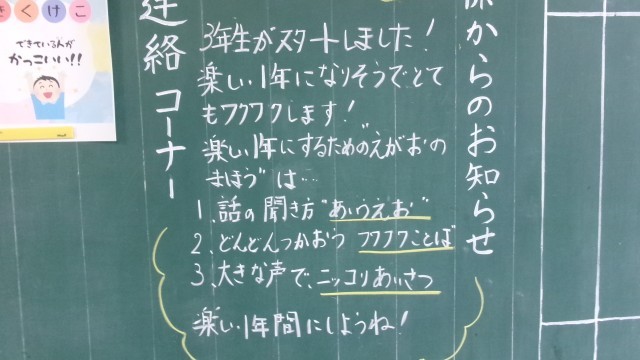 きくけこ
できている人が
かっこいい!!
連絡コーナー
3年生がスタートしました!
楽しい1年になりそうでとて
もワクワクします!
楽しい1年にするための"えがおの
まほう"は…
1、話の聞き方"あいうえお"
2、どんどんつかおう フワフワことば
3、大きな声で、ニッコリあいさつ
楽しい1年間にしようね!
からのお知らせ